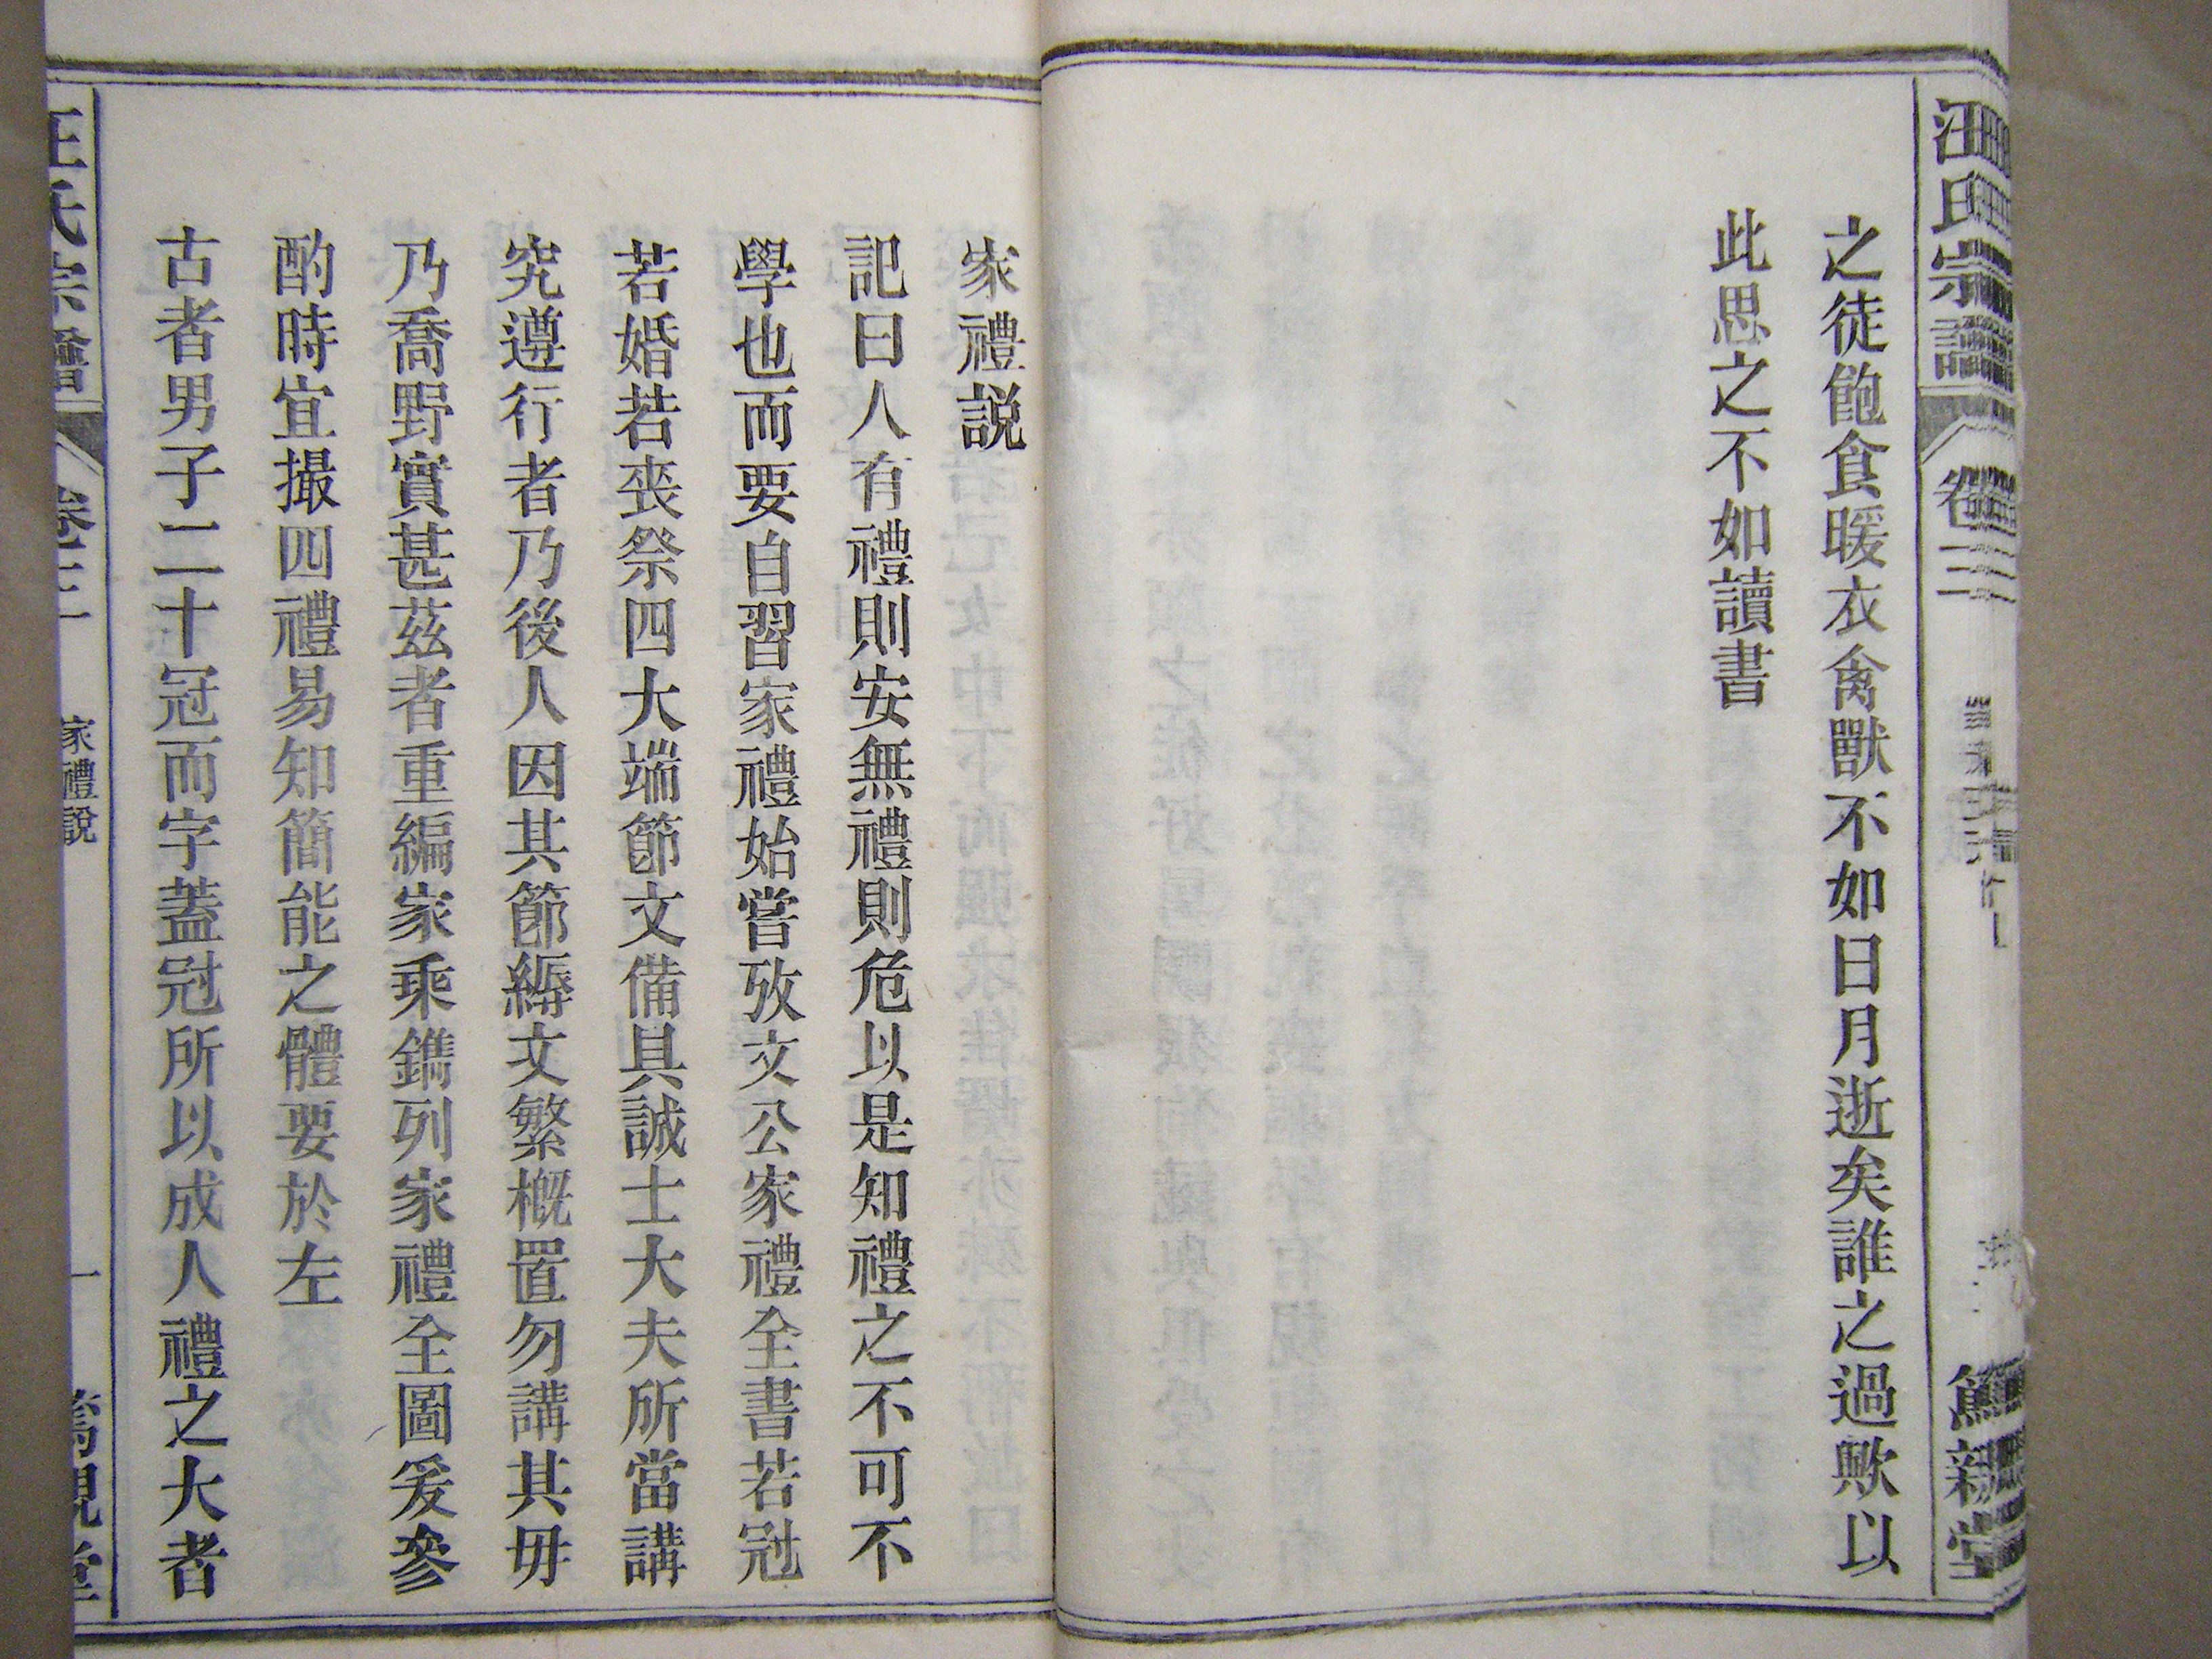 汪氏宗譜 卷三 篤親堂
之徒飽食暖衣禽獸不如日月逝矣誰之過歟以
此思之不如讀書
家禮説
記曰人有禮則安無禮則危以是知禮之不可不
學也而要自習家禮始嘗攷文公家禮全書若冠
若婚若喪祭四大端節文備具誠士大夫所當講
究遵行者乃後人因其節縟文繁概置勿講其毋
乃喬野實甚茲者重編家乘鐫列家禮全圖爰參
酌時宜撮四禮易知簡能之體要於左
古者男子二十冠而字蓋冠所以成人禮之大者
汪氏宗譜 卷三 家禮說 一 篤親堂